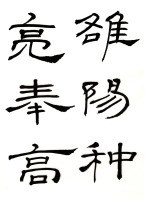 雒陽种
亮奉高